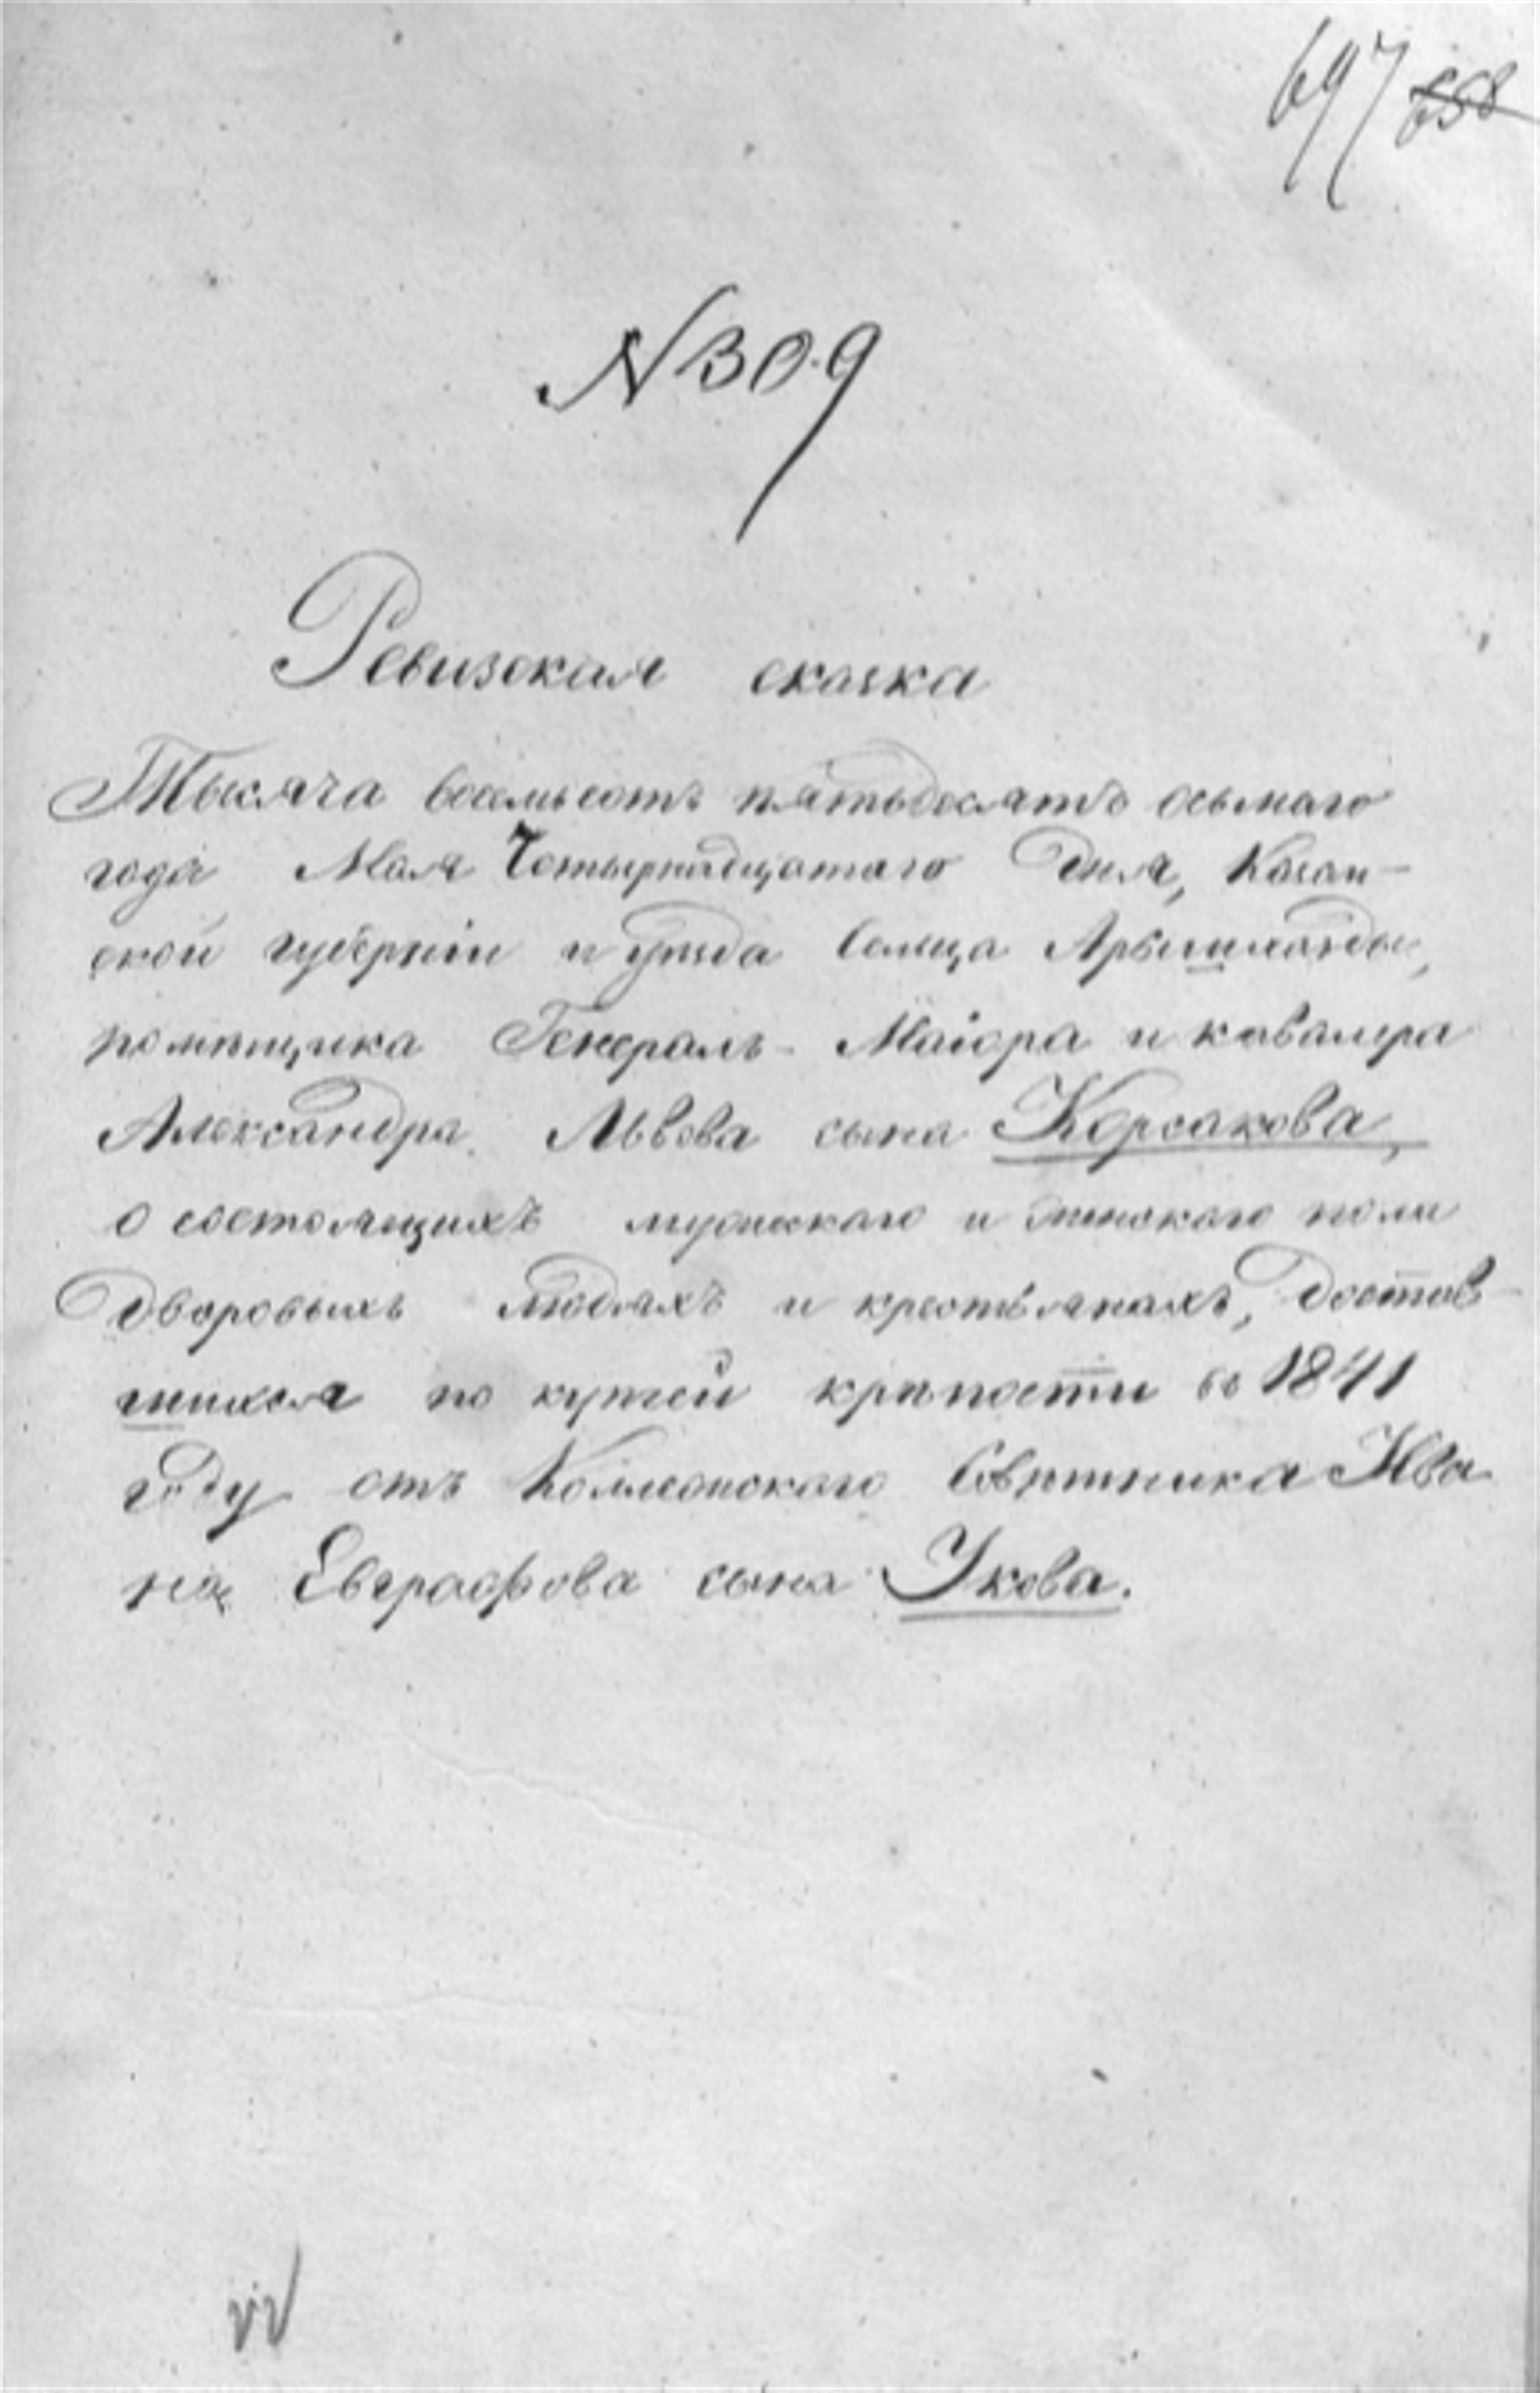 697 658
N 309
Ревизская сказка
Тысяча восемьсотъ пятьдесятъ осьмаго
года Мая Четырнадцатаго дня, Казан-
ской губерніи и уѣзда Сельца Арышхазды,
помѣщика Генералъ-Маіора и кавалера
Александра Львова сына Корсакова,
о состоящихъ мужескаго и женскаго пола
дворовыхъ людяхъ и крестьянахъ, достав-
шихся по купчей крѣпости въ 1841
году отъ Коллежскаго Совѣтника Ива
на Евграфова сына Укова.